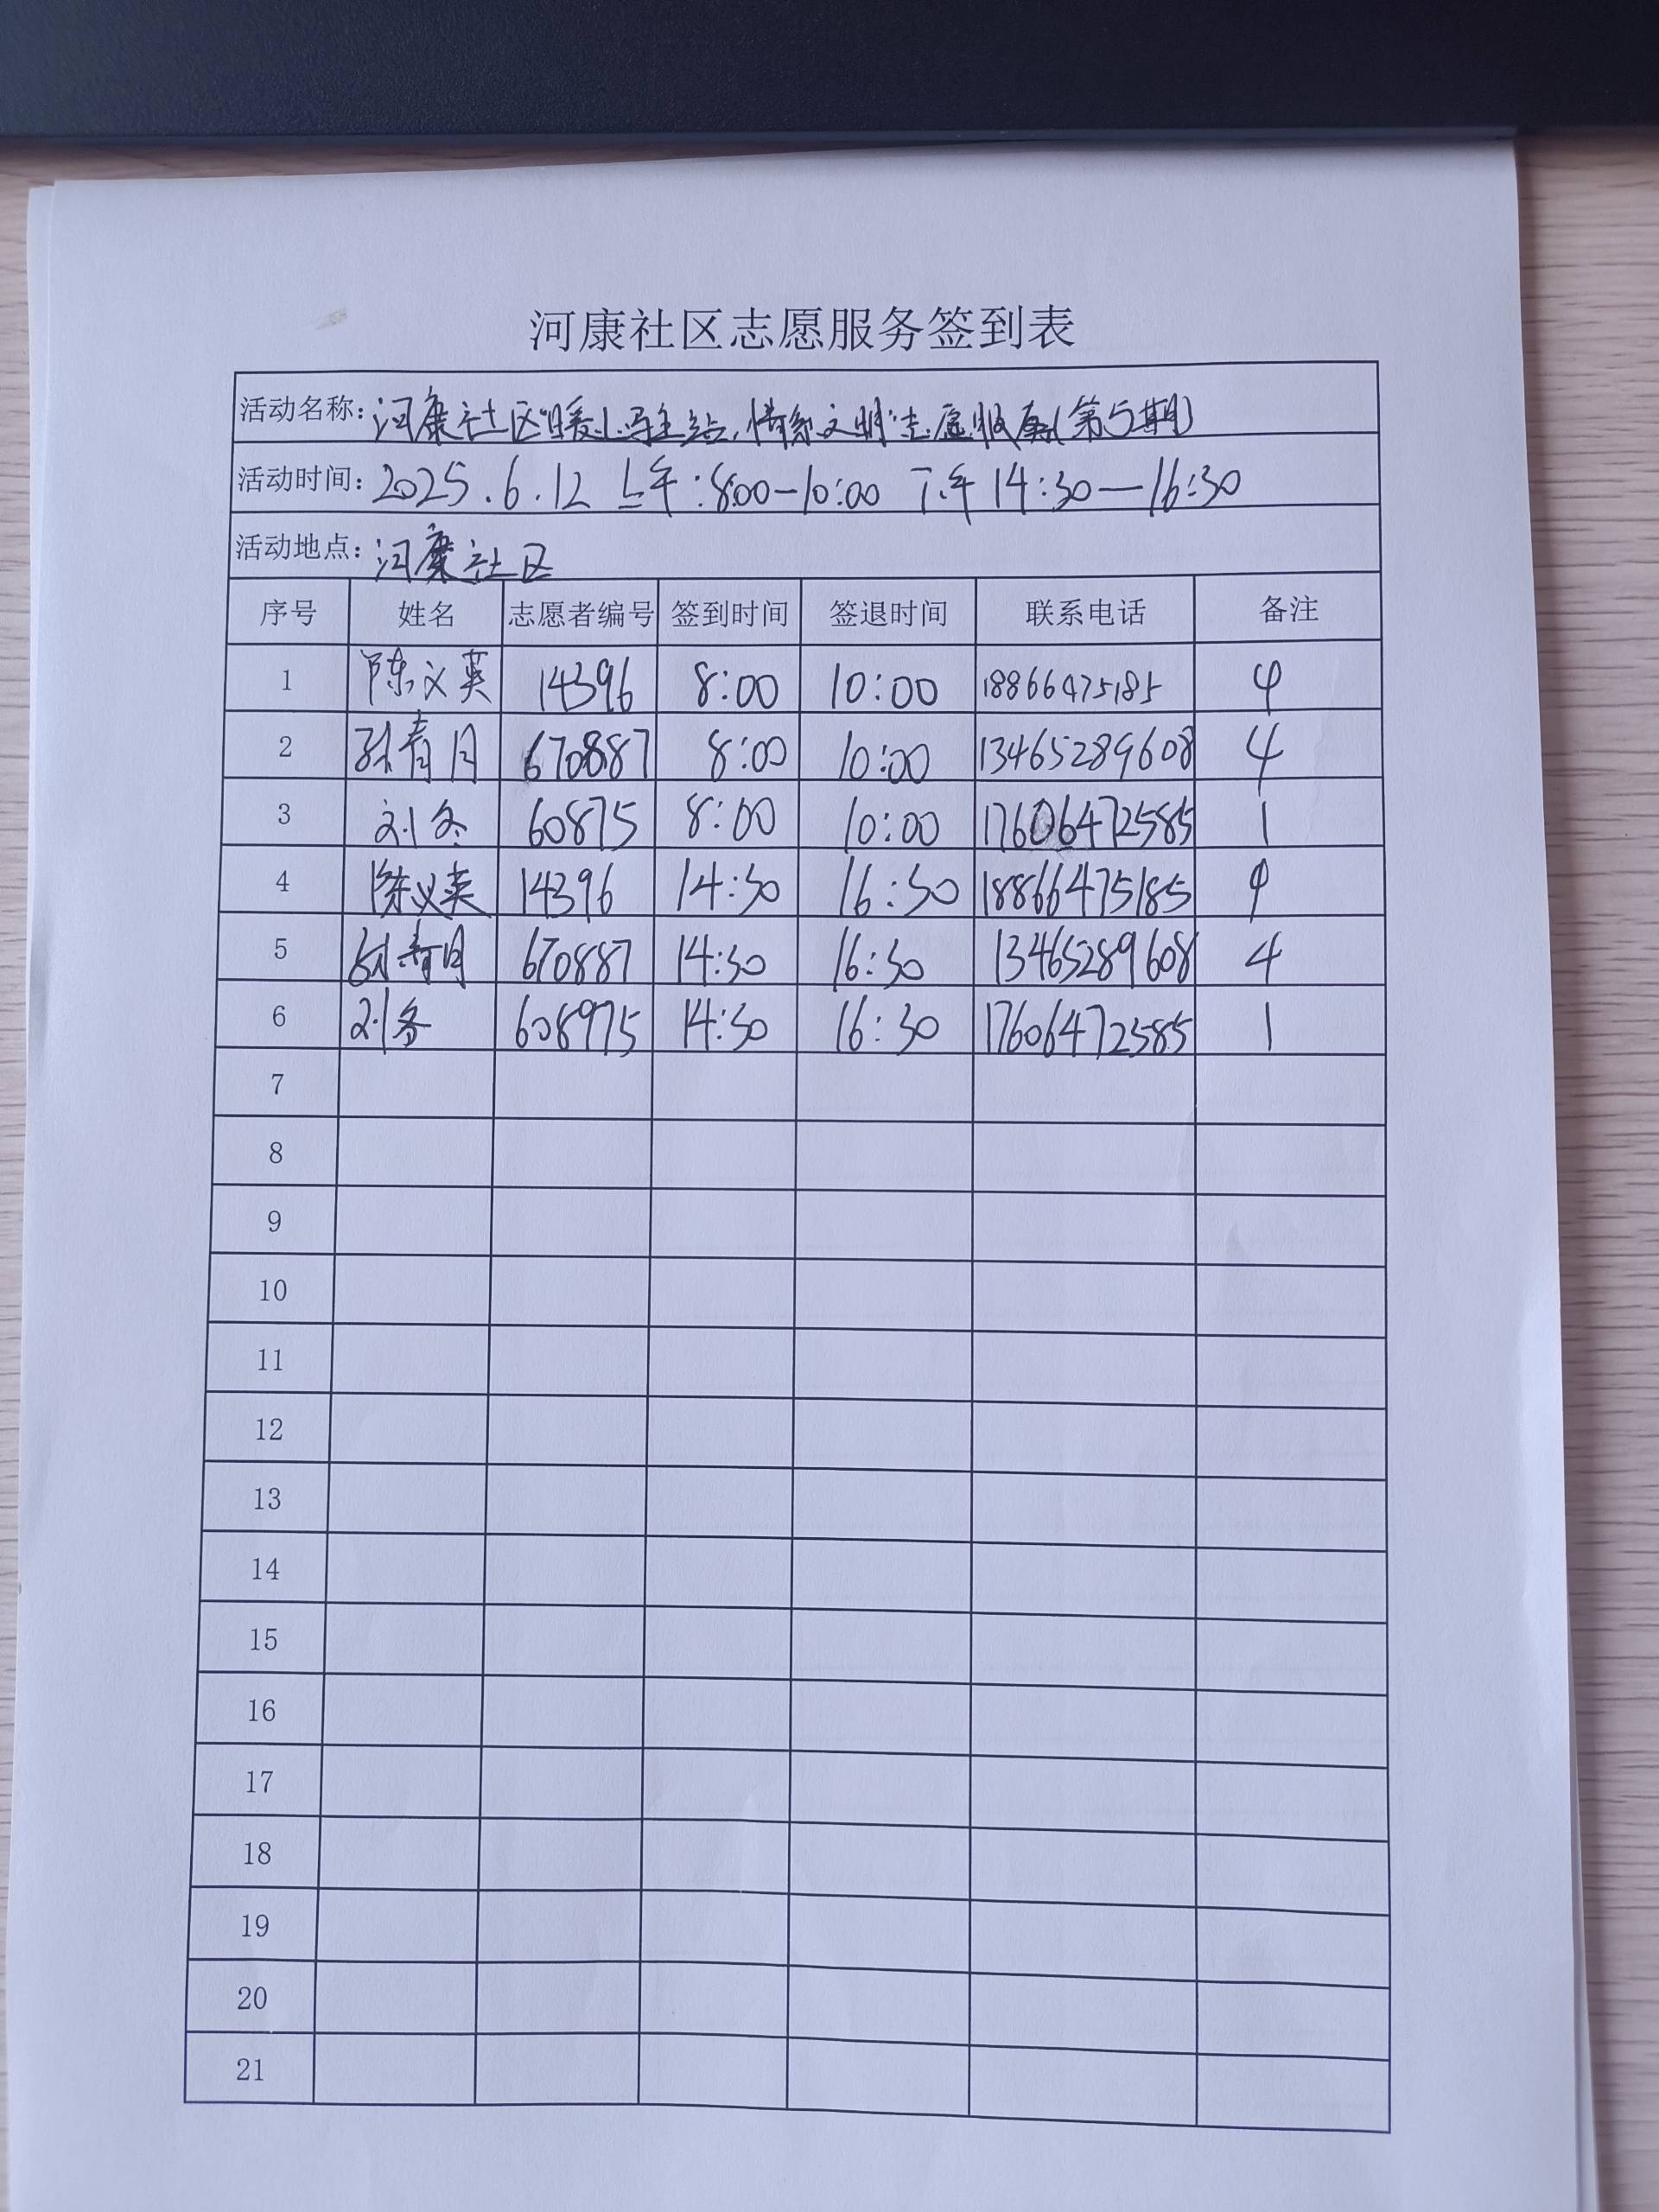 河康社区志愿服务签到表
活动名称: 河康社区"暖心驿站,情系文明"志愿服务(第5期)
活动时间: 2025.6.12 上午:8:00-10:00 下午14:30—16:30
活动地点: 河康社区
序号 姓名 志愿者编号 签到时间 签退时间 联系电话 备注
1 陈义英 14396 8:00 10:00 18866475185 4
2 孙青月 670887 8:00 10:00 13465289608 4
3 刘冬 60875 8:00 10:00 17606472585 1
4 陈义英 14396 14:30 16:30 18866475185
5 孙青月 670887 14:30 16:30 13465289608 4
6 刘冬 608975 14:30 16:30 17606472585 1
7
8
9
10
11
12
13
14
15
16
17
18
19
20
21